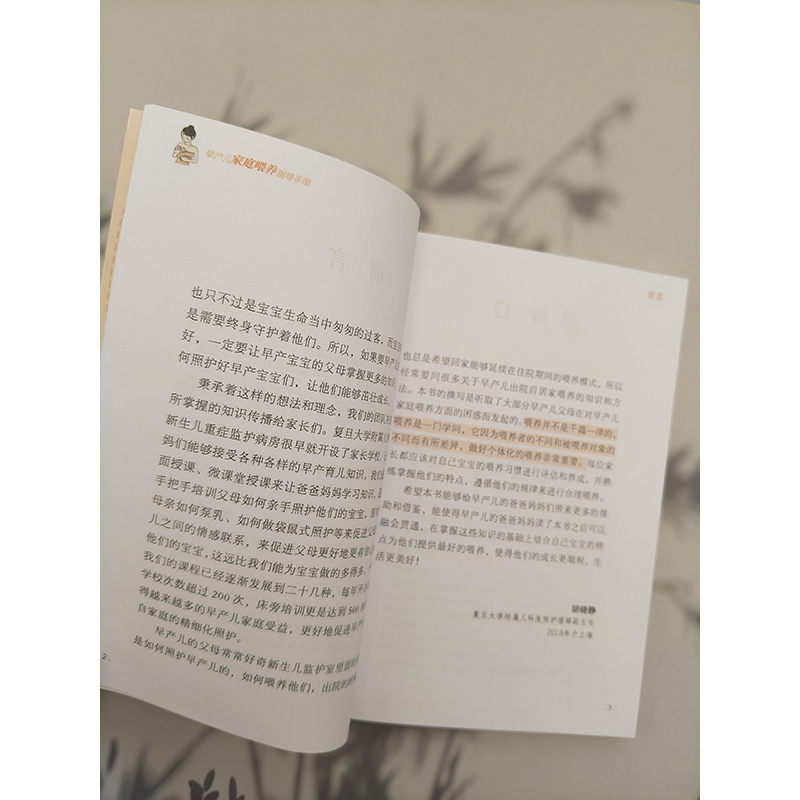 早产儿家庭喂养指导手册
也只不过是宝宝生命当中匆匆的过客，而宝
是需要终身守护着他们。所以，如果要早产
好，一定要让早产宝宝的父母掌握更多的知
何照护好早产宝宝们，让他们能够茁壮成长。
秉承着这样的想法和理念，我们的团队
所掌握的知识传播给家长们。复旦大学附属
新生儿重症监护病房很早就开设了家长学校，
妈们能够接受各种各样的早产育儿知识。我们
面授课、微课堂授课来让爸爸妈妈学习知识，
手把手培训父母如何亲手照护他们的宝宝，
母亲如何泵乳、如何做袋鼠式照护等来促进父
儿之间的情感联系，来促进父母更好地更有信
他们的宝宝，这远比我们能为宝宝做的多得多。
我们的课程已经逐渐发展到二十几种，每年开
学校次数超过 200 次，床旁培训更是达到 500
得越来越多的早产儿家庭受益，更好地促进早产
自家庭的精细化照护。
早产儿的父母常常好奇新生儿监护室里面
是如何照护早产儿的，如何喂养他们，出院的时
2
前言
也总是希望回家能够延续在住院期间的喂养模式，所以
经常要问很多关于早产儿出院后居家喂养的知识和方
法。本书的撰写是听取了大部分早产儿父母在对早产儿
家庭喂养方面的困惑而发起的。喂养并不是千篇一律的，
喂养是一门学问，它因为喂养者的不同和被喂养对象的
不同而有所差异，做好个体化的喂养非常重要。每位家
长都应该对自己宝宝的喂养习惯进行评估和养成，并熟
练掌握他们的特点，遵循他们的规律来进行合理喂养。
希望本书能够给早产儿的爸爸妈妈们带来更多的帮
助和借鉴，能使得早产儿的爸爸妈妈读了本书之后可以
融会贯通，在掌握这些知识的基础上结合自己宝宝的特
点为他们提供最好的喂养，使得他们的成长更顺利，生
活更美好！
胡晓静
复旦大学附属儿科医院护理部副主任
2018年于上海
. 3 .